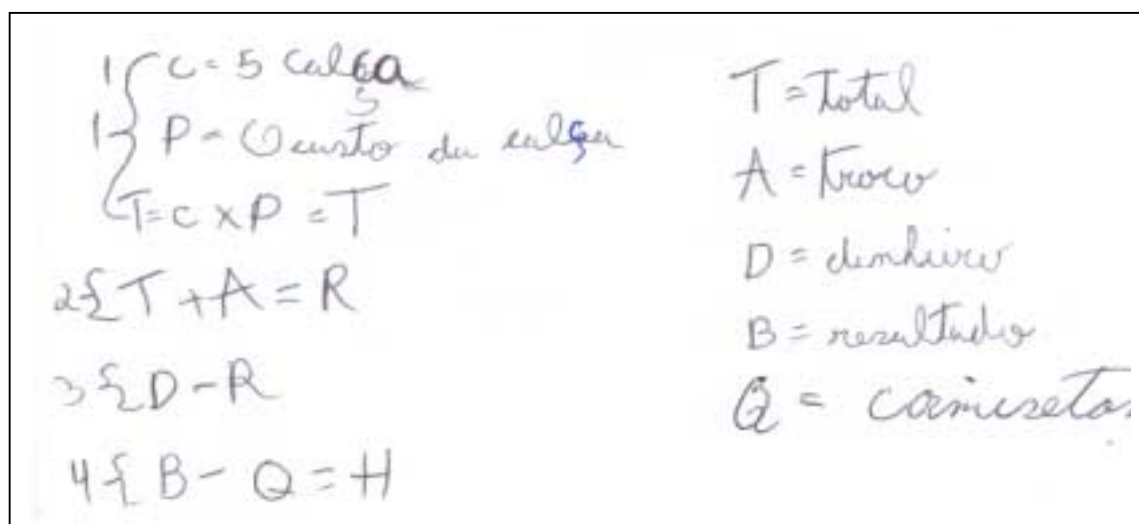 1 { C = 5 calça
1 } P = O custo da calça
T = C X P = T
2 { T + A = R
3 { D - R
4 { B - Q = H
T = total
A = troco
D = dinheiro
B = resultado
Q = camisetas